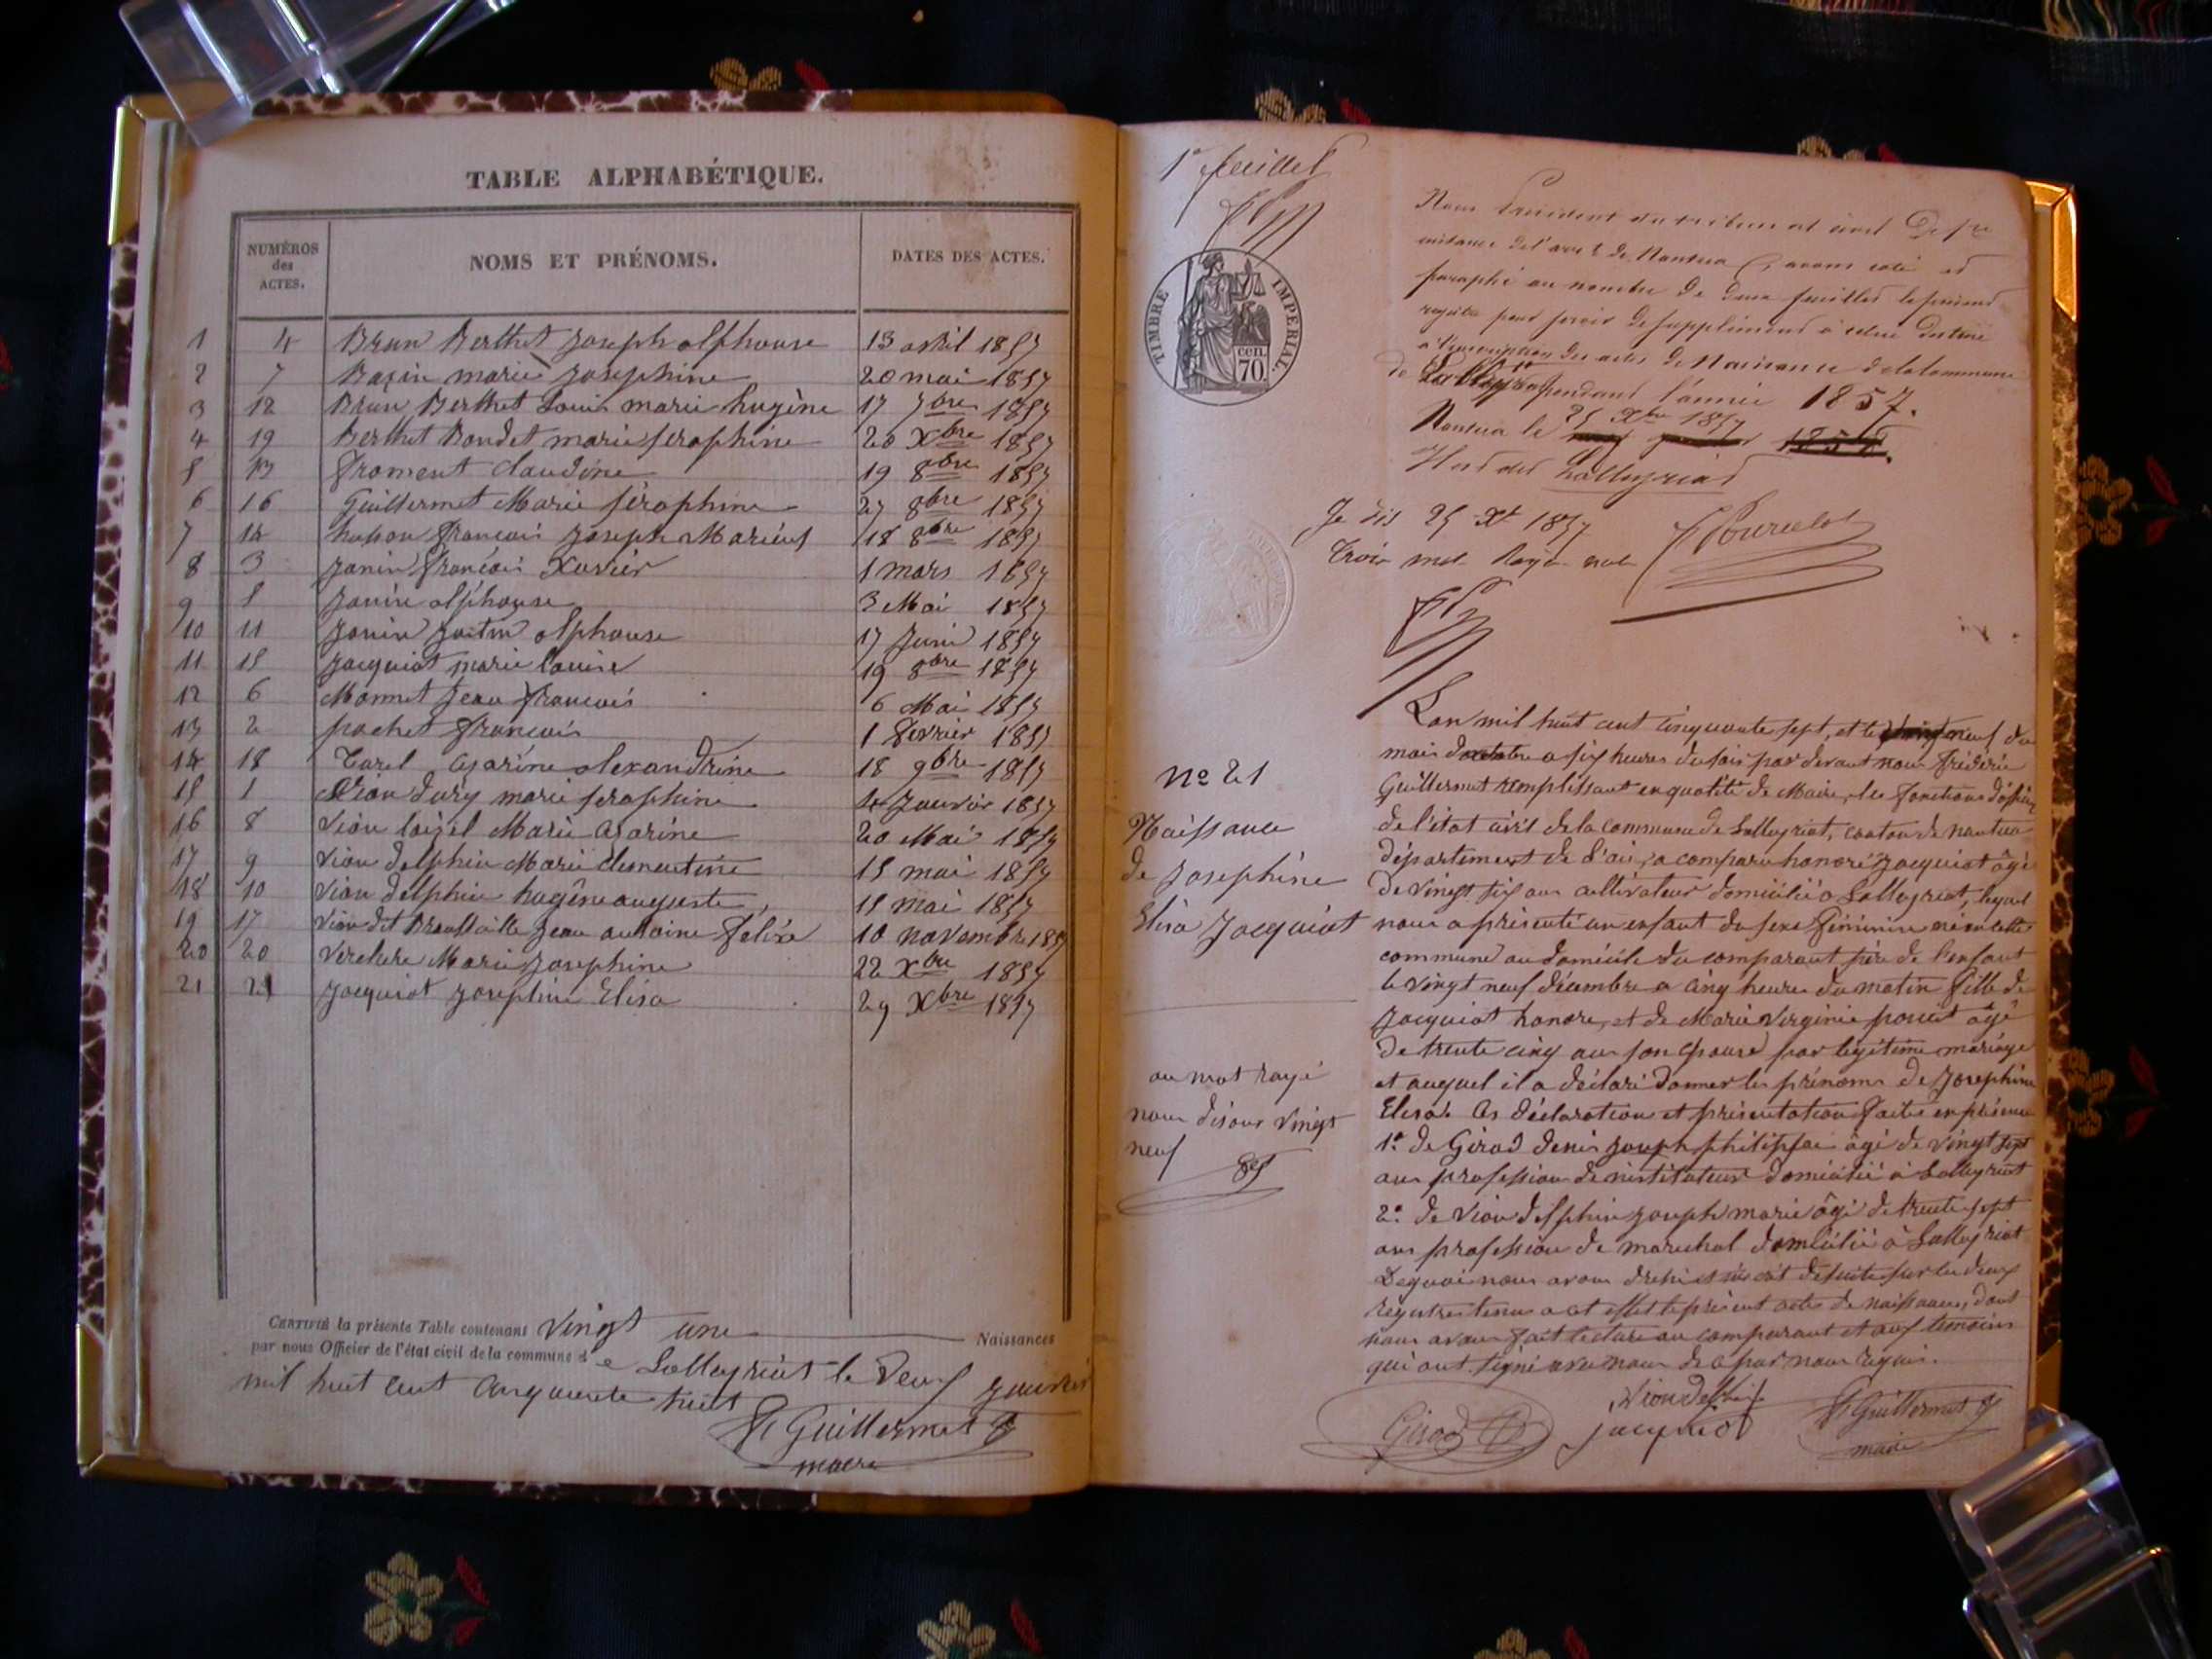 TABLE ALPHABÉTIQUE.
NUMÉROS des ACTES. NOMS ET PRÉNOMS. DATES DES ACTES.
1 4 Brun Berthet Joseph alphonse 13 avril 1857
2 7 Bazin marie Josephine 20 mai 1857
3 12 Brun Berthet Louis marie hugène 17 7bre 1857
4 19 Berthet Bondet marie seraphine 20 Xbre 1857
5 13 froment claudine 19 8bre 1857
6 16 Guillermet Marie séraphine 27 8bre 1857
7 14 husson françois Joseph Marius 18 8bre 1857
8 3 Janin françois Xavier 1 mars 1857
9 5 Janin alphonse 3 Mai 1857
10 11 Janin alphonse 17 Juin 1857
11 15 Jacquiot marie louise 19 8bre 1857
12 6 Monnet Jean françois 6 Mai 1857
13 2 pochet françois 1 fevrier 1857
14 18 Carel Azarine alexandrine 18 9bre 1857
15 1 Vion dury marie seraphine 4 Janvier 1857
16 8 Vion loizel Marie Azarine 20 Mai 1857
17 9 Vion delphin Marie clementine 15 mai 1857
18 10 Vion delphin hugène auguste 15 mai 1857
19 17 Vion dit Jean antoine félix 10 novembre 1857
20 20 Verchere Marie Josephine 22 Xbre 1857
21 21 Jacquiot Josephine Elisa 29 Xbre 1857
CERTIFIÉ la présente Table contenant Vingt une Naissances
par nous Officier de l'état civil de la commune de Lalleyriat le Janvier
mil huit cent cinquante huit
Guillermet
maire
1er feuillet
TIMBRE IMPERIAL.
cen. 70.
Nous Président du tribunal civil De 1re
instance de l'arrt de Nantua, avons coté et
paraphé au nombre de deux feuilles le présent
registre pour servir de supplément à celui destiné
à l'inscription des actes de Naissance de la Commune
de Lalleyriat pendant l'année 1857.
Nantua le 25 Xbre 1857 1858.
Lalleyriat
Je dis 25 Xe 1857
Trois mots Rayés nuls
No 21
Naissance
de Josephine
Elisa Jacquiot
au mot rayé
nous disons vingt
neuf
L'an mil huit cent cinquante sept, et le neuf du
mois a six heures du soir par devant nous fréderic
Guillermet remplissant en qualité de Maire, les fonctions d'officier
de l'état civil de la commune de Lalleyriat, canton de nantua
département de l'ain, a comparu honoré Jacquiot âgé
de vingt six ans cultivateur domicilié a Lalleyriat, lequel
nous a présenté un enfant du sexe féminin né en cette
commune au domicile du comparant père de l'enfant
le vingt neuf décembre a cinq heures du matin fille de
Jacquiot honoré, et de Marie Virginie âgé
de trente cinq ans son épouse par légitime mariage
et auquel il a déclaré donner les prénoms de Josephine
Elisa. Ces déclaration et présentation faites en présence
1o de Girod denis Joseph philippe âgé de vingt sept
ans profession de institateur domicilié à Lalleyriat
2o de Vion delphin Joseph marie âgé de trente sept
ans profession de marechal domicilié à Lalleyriat
De quoi nous avons dressé et de suite sur les deux
registres tenus a cet effet le présent acte de naissance, dont
nous avons fait lecture au comparant et aux temoins
qui ont signé avec nous de ce par nous requis.
Girod Vion delphin Jacquiot Guillermet
maire